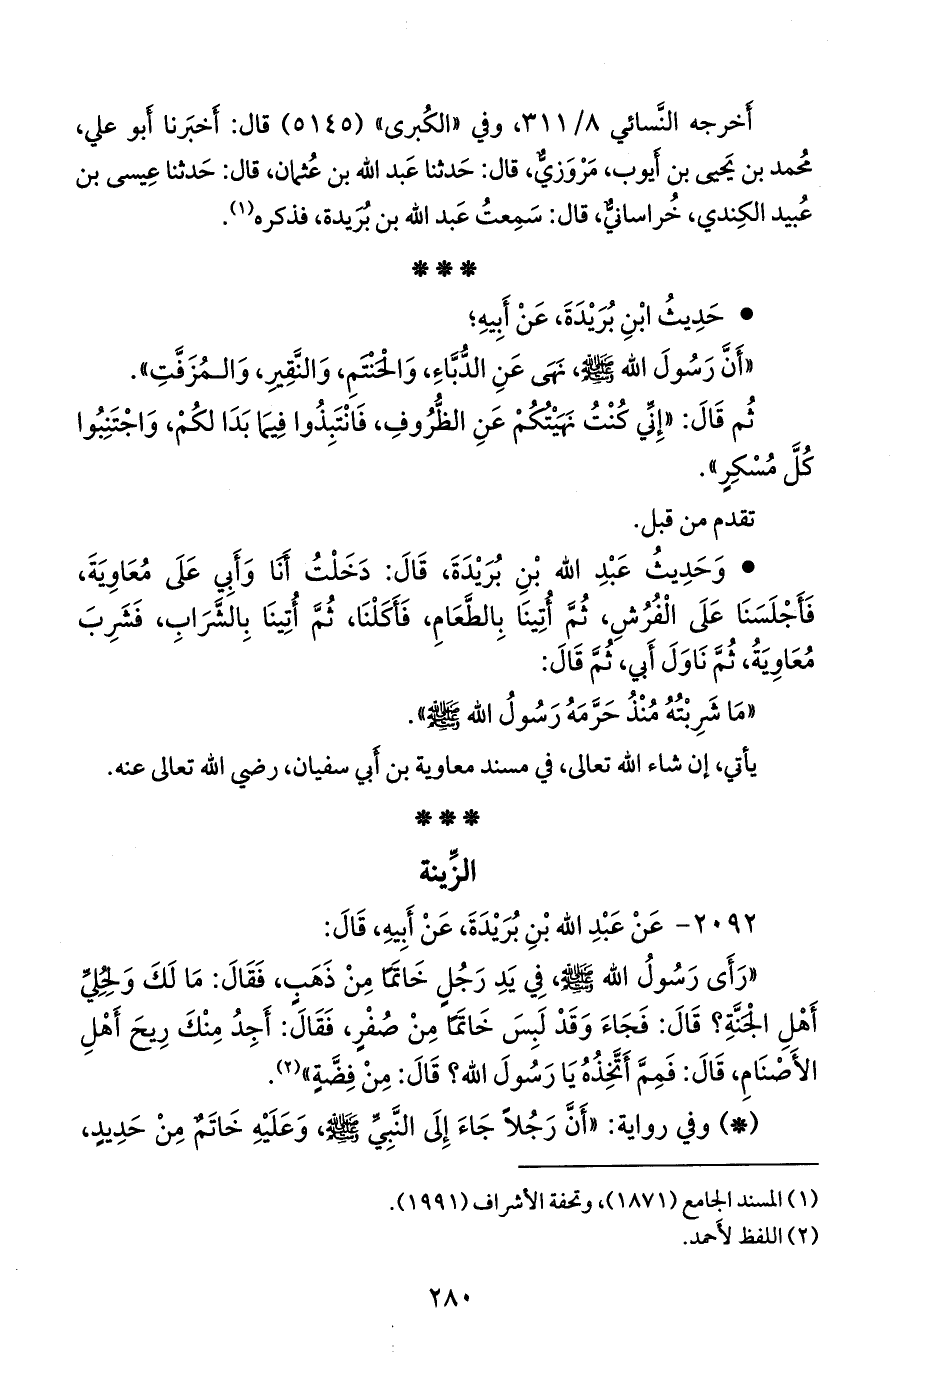 أَخرجه النَّسائي ٨/ ٣١١، وفي «الكُبرى» (٥١٤٥) قال: أَخبَرنا أَبو علي،
مُحمد بن يَحيى بن أَيوب، مَرْوَزيٌّ، قال: حَدثنا عَبد الله بن عُثمان، قال: حَدثنا عِيسى بن
عُبيد الكِندي، خُراسانيٌّ، قال: سَمِعتُ عَبد الله بن بُرَيدة، فذكره(١).
***
• حَدِيثُ ابْنِ بُرَيْدَةَ، عَنْ أَبِيهِ؛
«أَنَّ رَسُولَ الله ﷺ، نَهَى عَنِ الدُّبَّاءِ، وَالْحَنْتَمِ، وَالنَّقِيرِ، وَالـمُزَفَّتِ».
ثُم قَالَ: «إِنِّي كُنْتُ نَهَيْتُكُمْ عَنِ الظُّرُوفِ، فَانْتَبِذُوا فِيمَا بَدَا لَكُمْ، وَاجْتَنِبُوا
كُلَّ مُسْكِرٍ».
تقدم من قبل.
• وَحَدِيثُ عَبْدِ الله بْنِ بُرَيْدَةَ، قَالَ: دَخَلْتُ أَنَا وَأَبِي عَلَى مُعَاوِيَةَ،
فَأَجْلَسَنَا عَلَى الْفُرُشِ، ثُمَّ أُتِينَا بِالطَّعَامِ، فَأَكَلْنَا، ثُمَّ أُتِينَا بِالشَّرَابِ، فَشَرِبَ
مُعَاوِيَةُ، ثُمَّ نَاوَلَ أَبي، ثُمَّ قَالَ:
«مَا شَرِبْتُهُ مُنْذُ حَرَّمَهُ رَسُولُ الله ﷺ».
يأتي، إن شاء الله تعالى، في مسند معاوية بن أَبي سفيان، رضي الله تعالى عنه.
***
الزِّينة
٢٠٩٢- عَنْ عَبْدِ الله بْنِ بُرَيْدَةَ، عَنْ أَبِيهِ، قَالَ:
«رَأَى رَسُولُ الله ﷺ، فِي يَدِ رَجُلٍ خَاتَمًا مِنْ ذَهَبٍ، فَقَالَ: مَا لَكَ وَلِحُلِيِّ
أَهْلِ الْجَنَّةِ؟ قَالَ: فَجَاءَ وَقَدْ لَبِسَ خَاتَمًا مِنْ صُفْرٍ، فَقَالَ: أَجِدُ مِنْكَ رِيحَ أَهْلِ
الأَصْنَامِ، قَالَ: فَمِمَّ أَتَّخِذُهُ يَا رَسُولَ الله؟ قَالَ: مِنْ فِضَّةٍ»(٢).
(*) وفي رواية: «أَنَّ رَجُلاً جَاءَ إِلَى النَّبِيِّ ﷺ، وَعَلَيْهِ خَاتَمٌ مِنْ حَدِيدٍ،
(١) المسند الجامع (١٨٧١)، وتحفة الأشراف (١٩٩١).
(٢) اللفظ لأَحمد.
٢٨٠